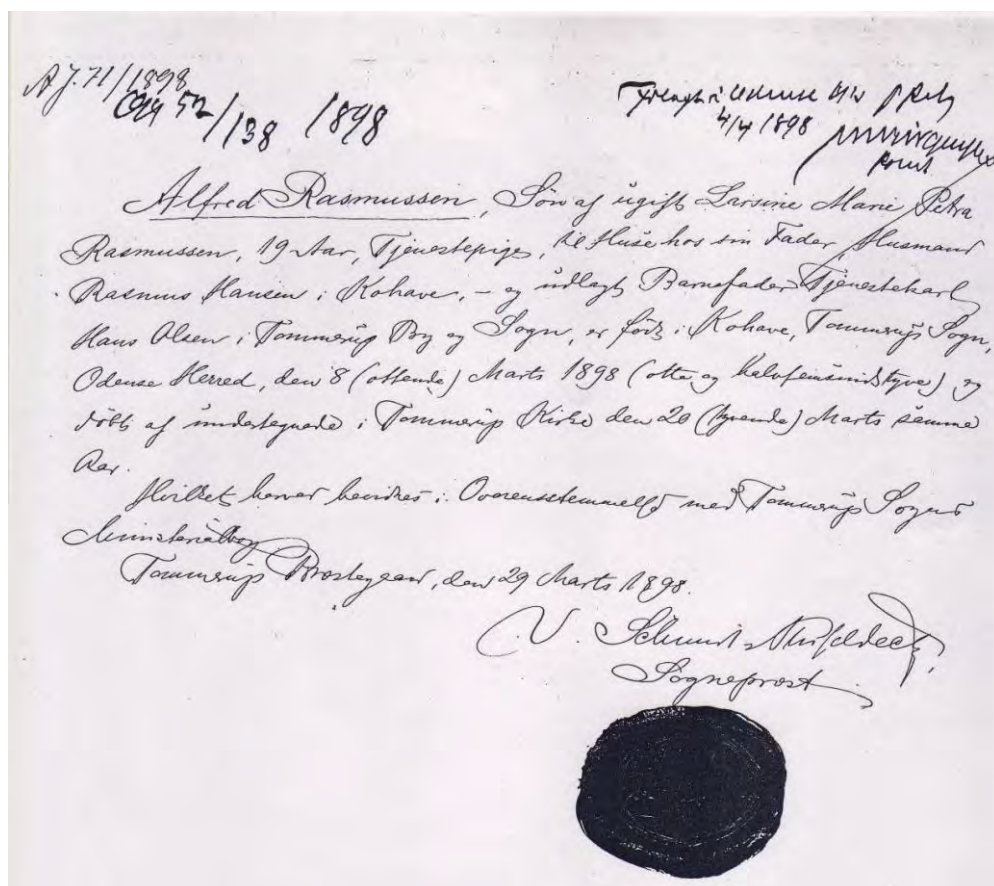 A J. 71/1898
52/138 1898
4/4 1898
Alfred Rasmussen, Søn af ugift Larsine Marie Petra
Rasmussen, 19 Aar, Tjenestepige, til Huse hos sin Fader, Husmand
Rasmus Hansen i Kohave, – og udlagt Barnefader Tjenestekarl
Hans Olsen i Tommerup By og Sogn, er født i Kohave, Tommerup Sogn,
Odense Herred, den 8 (ottende) Marts 1898 (otte og halvfemsindstyve) og
døbt af undertegnede i Tommerup Kirke den 20 (tyvende) Marts samme
Aar.
Hvilket herved bevidnes i Overensstemmelse med Tommerup Sogns
Ministerialbog
Tommerup Præstegaard, den 29 Marts 1898.
V. Schmidt
Sognepræst